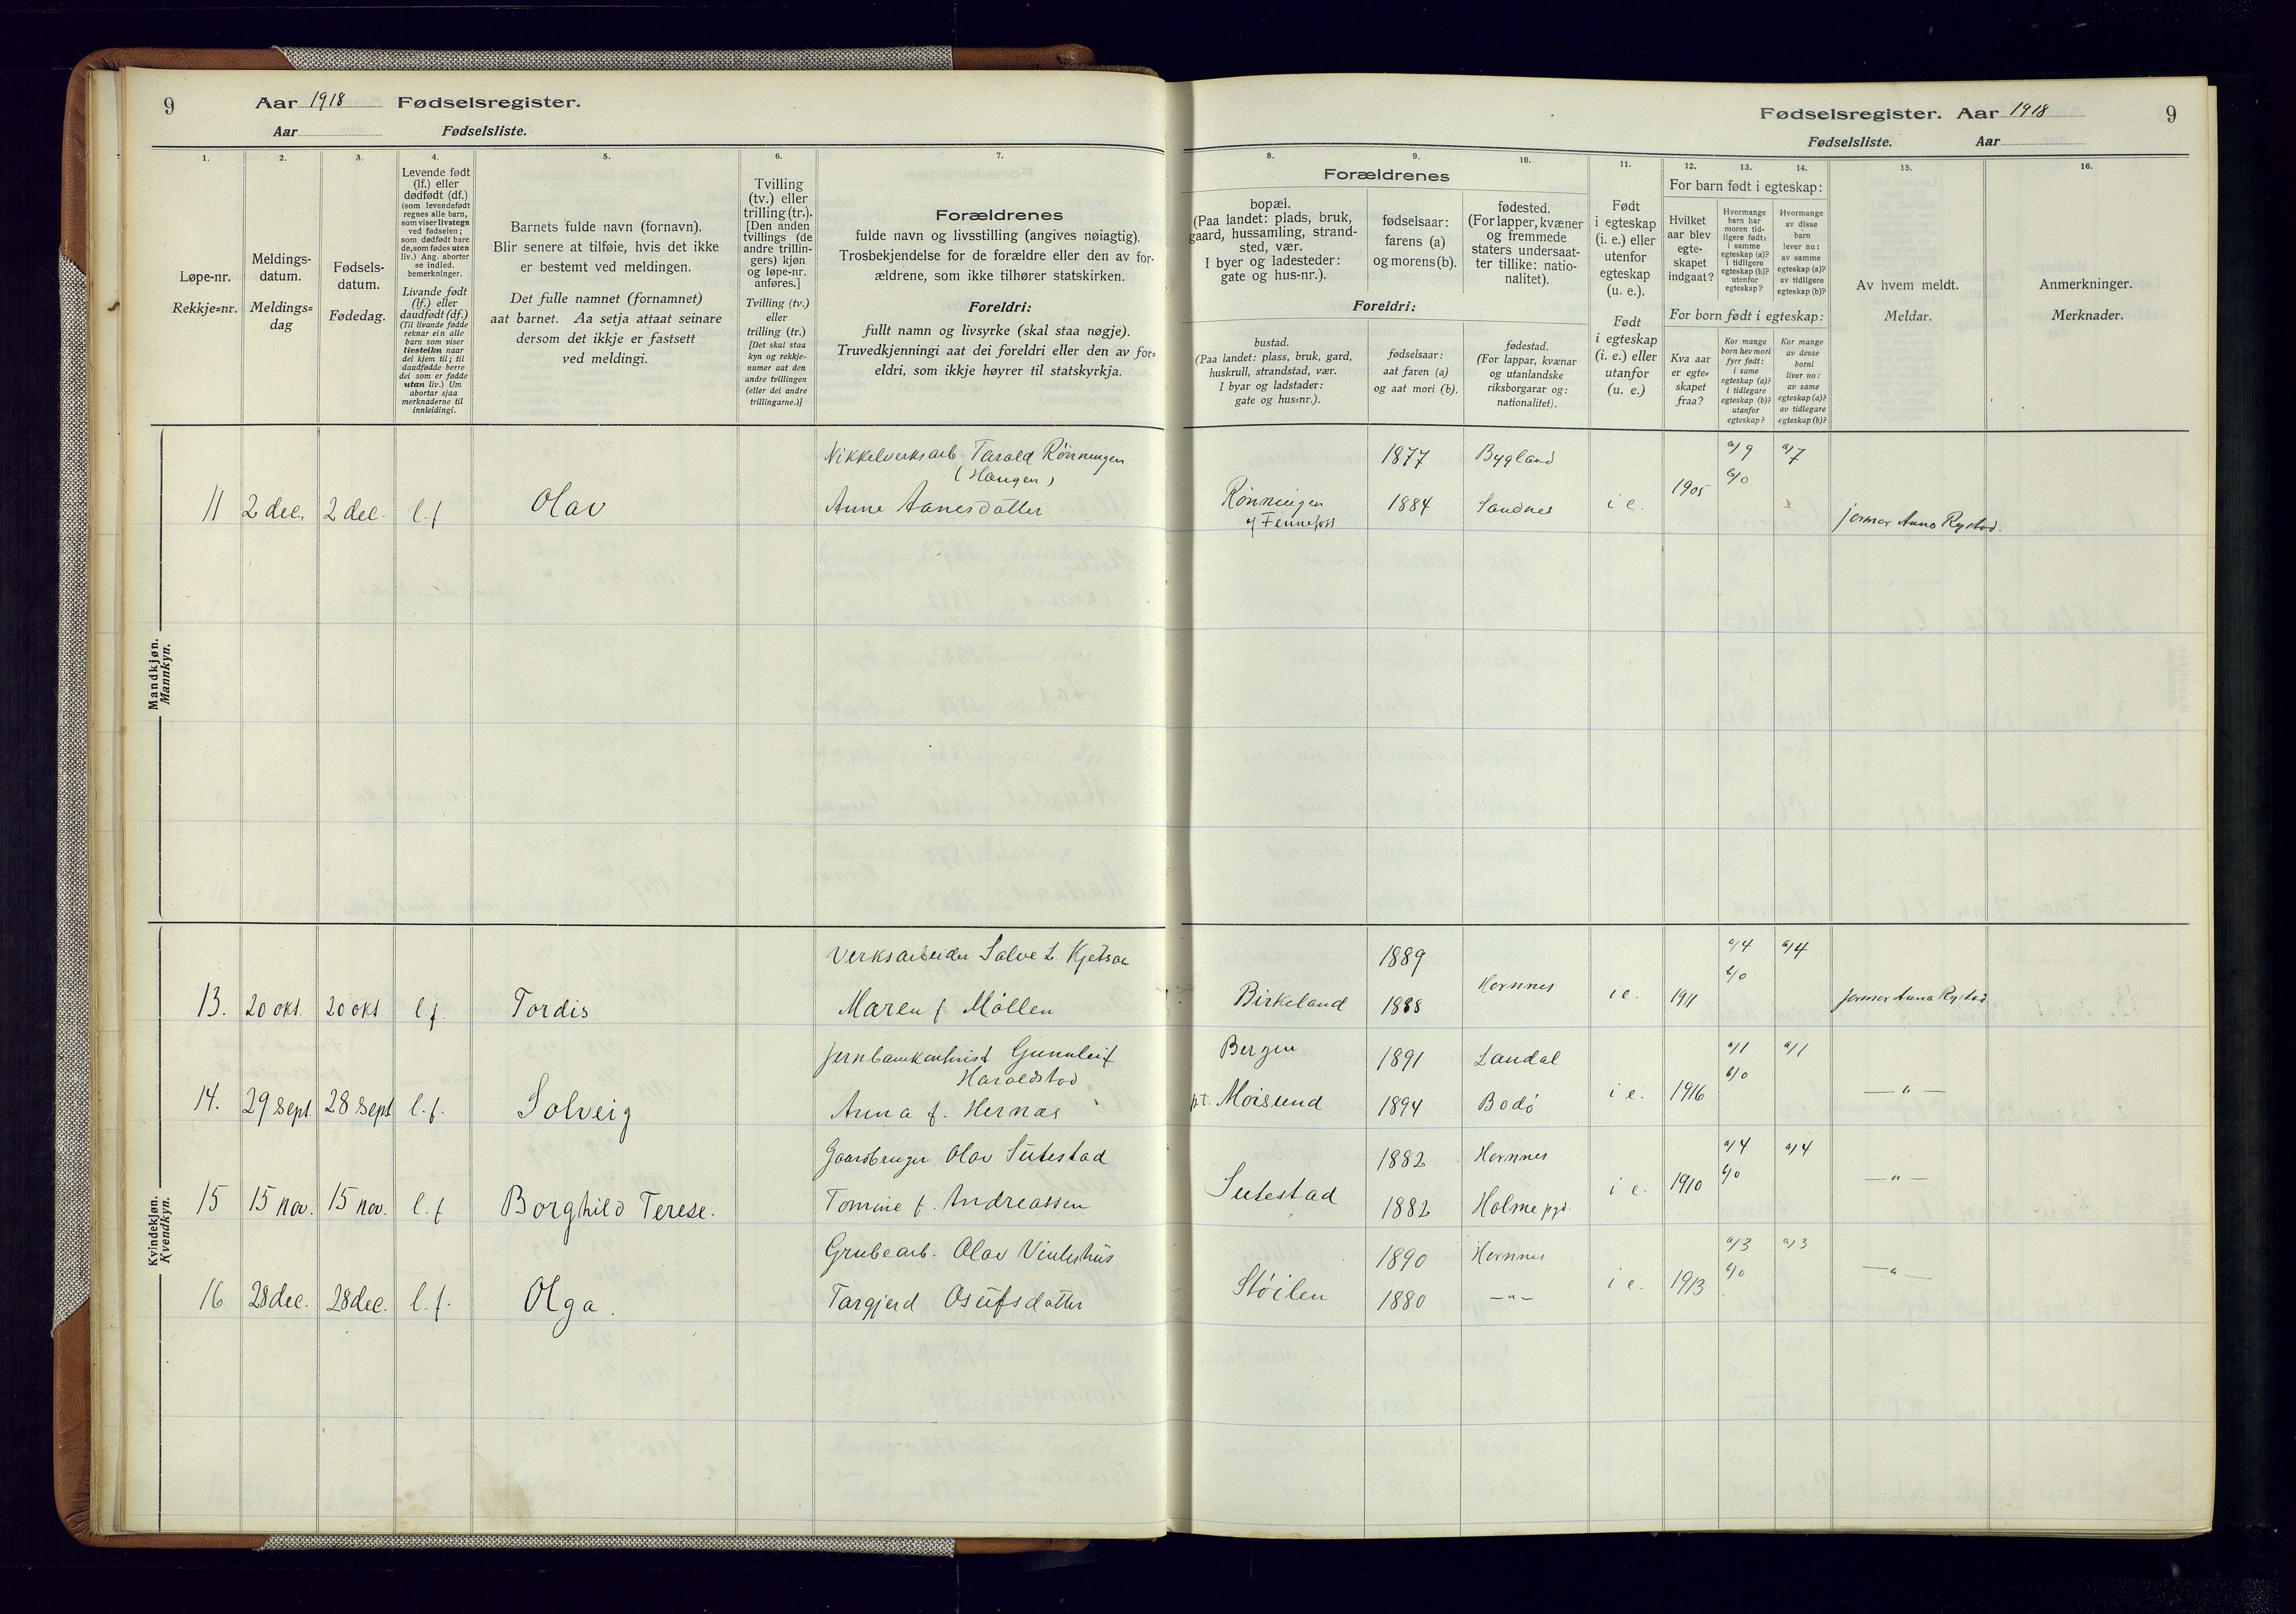 9 Aar 1918 Fødselsregister.
Aar Fødselsliste.
1. 2. 3. 4. 5. 6. 7.
Løpe-nr.
Rekkje=nr.
Meldings-
datum.
Meldings=
dag
Fødsels-
datum.
Fødedag.
Levende født
(lf.) eller
dødfødt (df.)
(som levendefødt
regnes alle barn,
som viser livstegn
ved fødselen;
som dødfødt bare
de, som fødes uten
liv.) Ang. aborter
se indled.
bemerkninger.
Livande født
(lf.) eller
daudfødt (df.)
(Til livande fødde
reknar ein alle
barn som viser
livsteikn naar
dei kjem til; til
daudfødde berre
dei som er fødde
utan liv.) Um
abortar sjaa
merknaderne til
innleidingi.
Barnets fulde navn (fornavn).
Blir senere at tilføie, hvis det ikke
er bestemt ved meldingen.
Det fulle namnet (fornamnet)
aat barnet. Aa setja attaat seinare
dersom det ikkje er fastsett
ved meldingi.
Tvilling
(tv.) eller
trilling (tr.).
[Den anden
tvillings (de
andre trillin-
gers) kjøn
og løpe-nr.
anføres.]
Tvilling (tv.)
eller
trilling (tr.)
[Det skal staa
kyn og rekkje-
numer aat den
andre tvillingen
(eller dei andre
trillingarne.)]
Forældrenes
fulde navn og livsstilling (angives nøiagtig).
Trosbekjendelse for de forældre eller den av for-
ældrene, som ikke tilhører statskirken.
Foreldri:
fullt namn og livsyrke (skal staa nøgje).
Truvedkjenningi aat dei foreldri eller den av for=
eldri, som ikkje høyrer til statskyrkja.
Mandkjøn.
Mannkyn.
Nikkelverksarb. Tarald Rönningen
(Haugen)
11 2 dec. 2 dec. l.f Olav Anne Aanesdatter
Kvindekjøn.
Kvendkyn.
Verksarbeider Salve L. Kjetsaa
13. 20 okt. 20 okt l.f. Tordis Maren f. Möllen
Gunnleif
Haraldstad
14. 29 sept. 28 sept l.f. Solveig Anna f. Hernæs
Gaardbruger Olav Sutestad
15 15 nov. 15 nov. l.f Borghild Terese. Tomine f. Andreassen
Grubearb. Olav Vinteshus
16 28 dec. 28 dec. l.f. Olga. Targjerd Osufsdatter
Fødselsregister. Aar 1918 9
Fødselsliste. Aar
8. 9. 10. 11. 12. 13. 14. 15. 16.
Forældrenes
bopæl.
(Paa landet: plads, bruk,
gaard, hussamling, strand-
sted, vær.
I byer og ladesteder:
gate og hus-nr.).
fødselsaar:
farens (a)
og morens (b).
fødested.
(For lapper, kvæner
og fremmede
staters undersaat-
ter tillike: natio-
nalitet).
Foreldri:
bustad.
(Paa landet: plass, bruk, gard,
huskrull, strandstad, vær.
I byar og ladstader:
gate og hus=nr.).
fødselsaar:
aat faren (a)
og aat mori (b).
fødestad.
(For lappar, kvænar
og utanlandske
riksborgarar og:
nationalitet).
Født
i egteskap
(i. e.) eller
utenfor
egteskap
(u. e.).
Født
i egteskap
(i. e.) eller
utanfor
(u. e.)
For barn født i egteskap:
Hvilket
aar blev
egte-
skapet
indgaat?
Hvormange
barn har
moren tid-
ligere født:
i samme
egteskap (a)?
i tidligere
egteskap (b)?
utenfor
egteskap?
Hvormange
av disse
barn
lever nu:
av samme
egteskap (a)?
av tidligere
egteskap (b)?
For born født i egteskap:
Kva aar
er egte=
skapet
fraa?
Kor mange
born hev mori
fyrr født:
i same
egteskap (a)?
i tidlegare
egteskap (b)?
utanfor
egteskap?
Kor mange
av desse
borni
liver no:
av same
egteskap (a)?
av tidlegare
egteskap (b)?
Av hvem meldt.
Meldar.
Anmerkninger.
Merknader.
1877 Bygland a/9 a/7
b/0
Rönningen 1884 Sandnes i e. 1905
af Fennefoss jormor Anna Rystad.
1889 a/4 a/4
b/0
Birkeland 1888 Hornnes i e. 1911 jormor Anna Rystad
Bergen 1891 Laudal a/1 a/1
b/0
p.t. Moisund 1894 Bodö i e. 1916 — " —
1882 Hornnes a/4 a/4
b/0
Sutestad 1882 Holme pgd. i e. 1910 — " —
1890 Hornnes a/3 a/3
b/0
Stöilen 1880 — " — i e. 1913 — " —